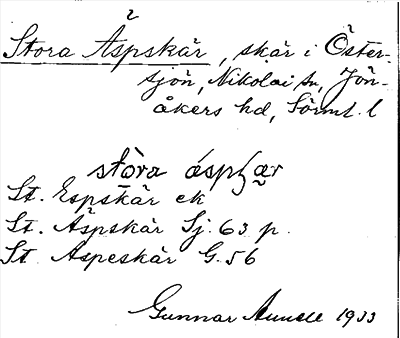 Stora Äspskär, skär i Öster-
sjön, Nikolai sn, Jön-
åkers hd, Sörml. l
stòra áspʃær
St. Espskär ek
St. Äspskär Sj. 63 p.
St Aspeskär G. 56
Gunnar 1933